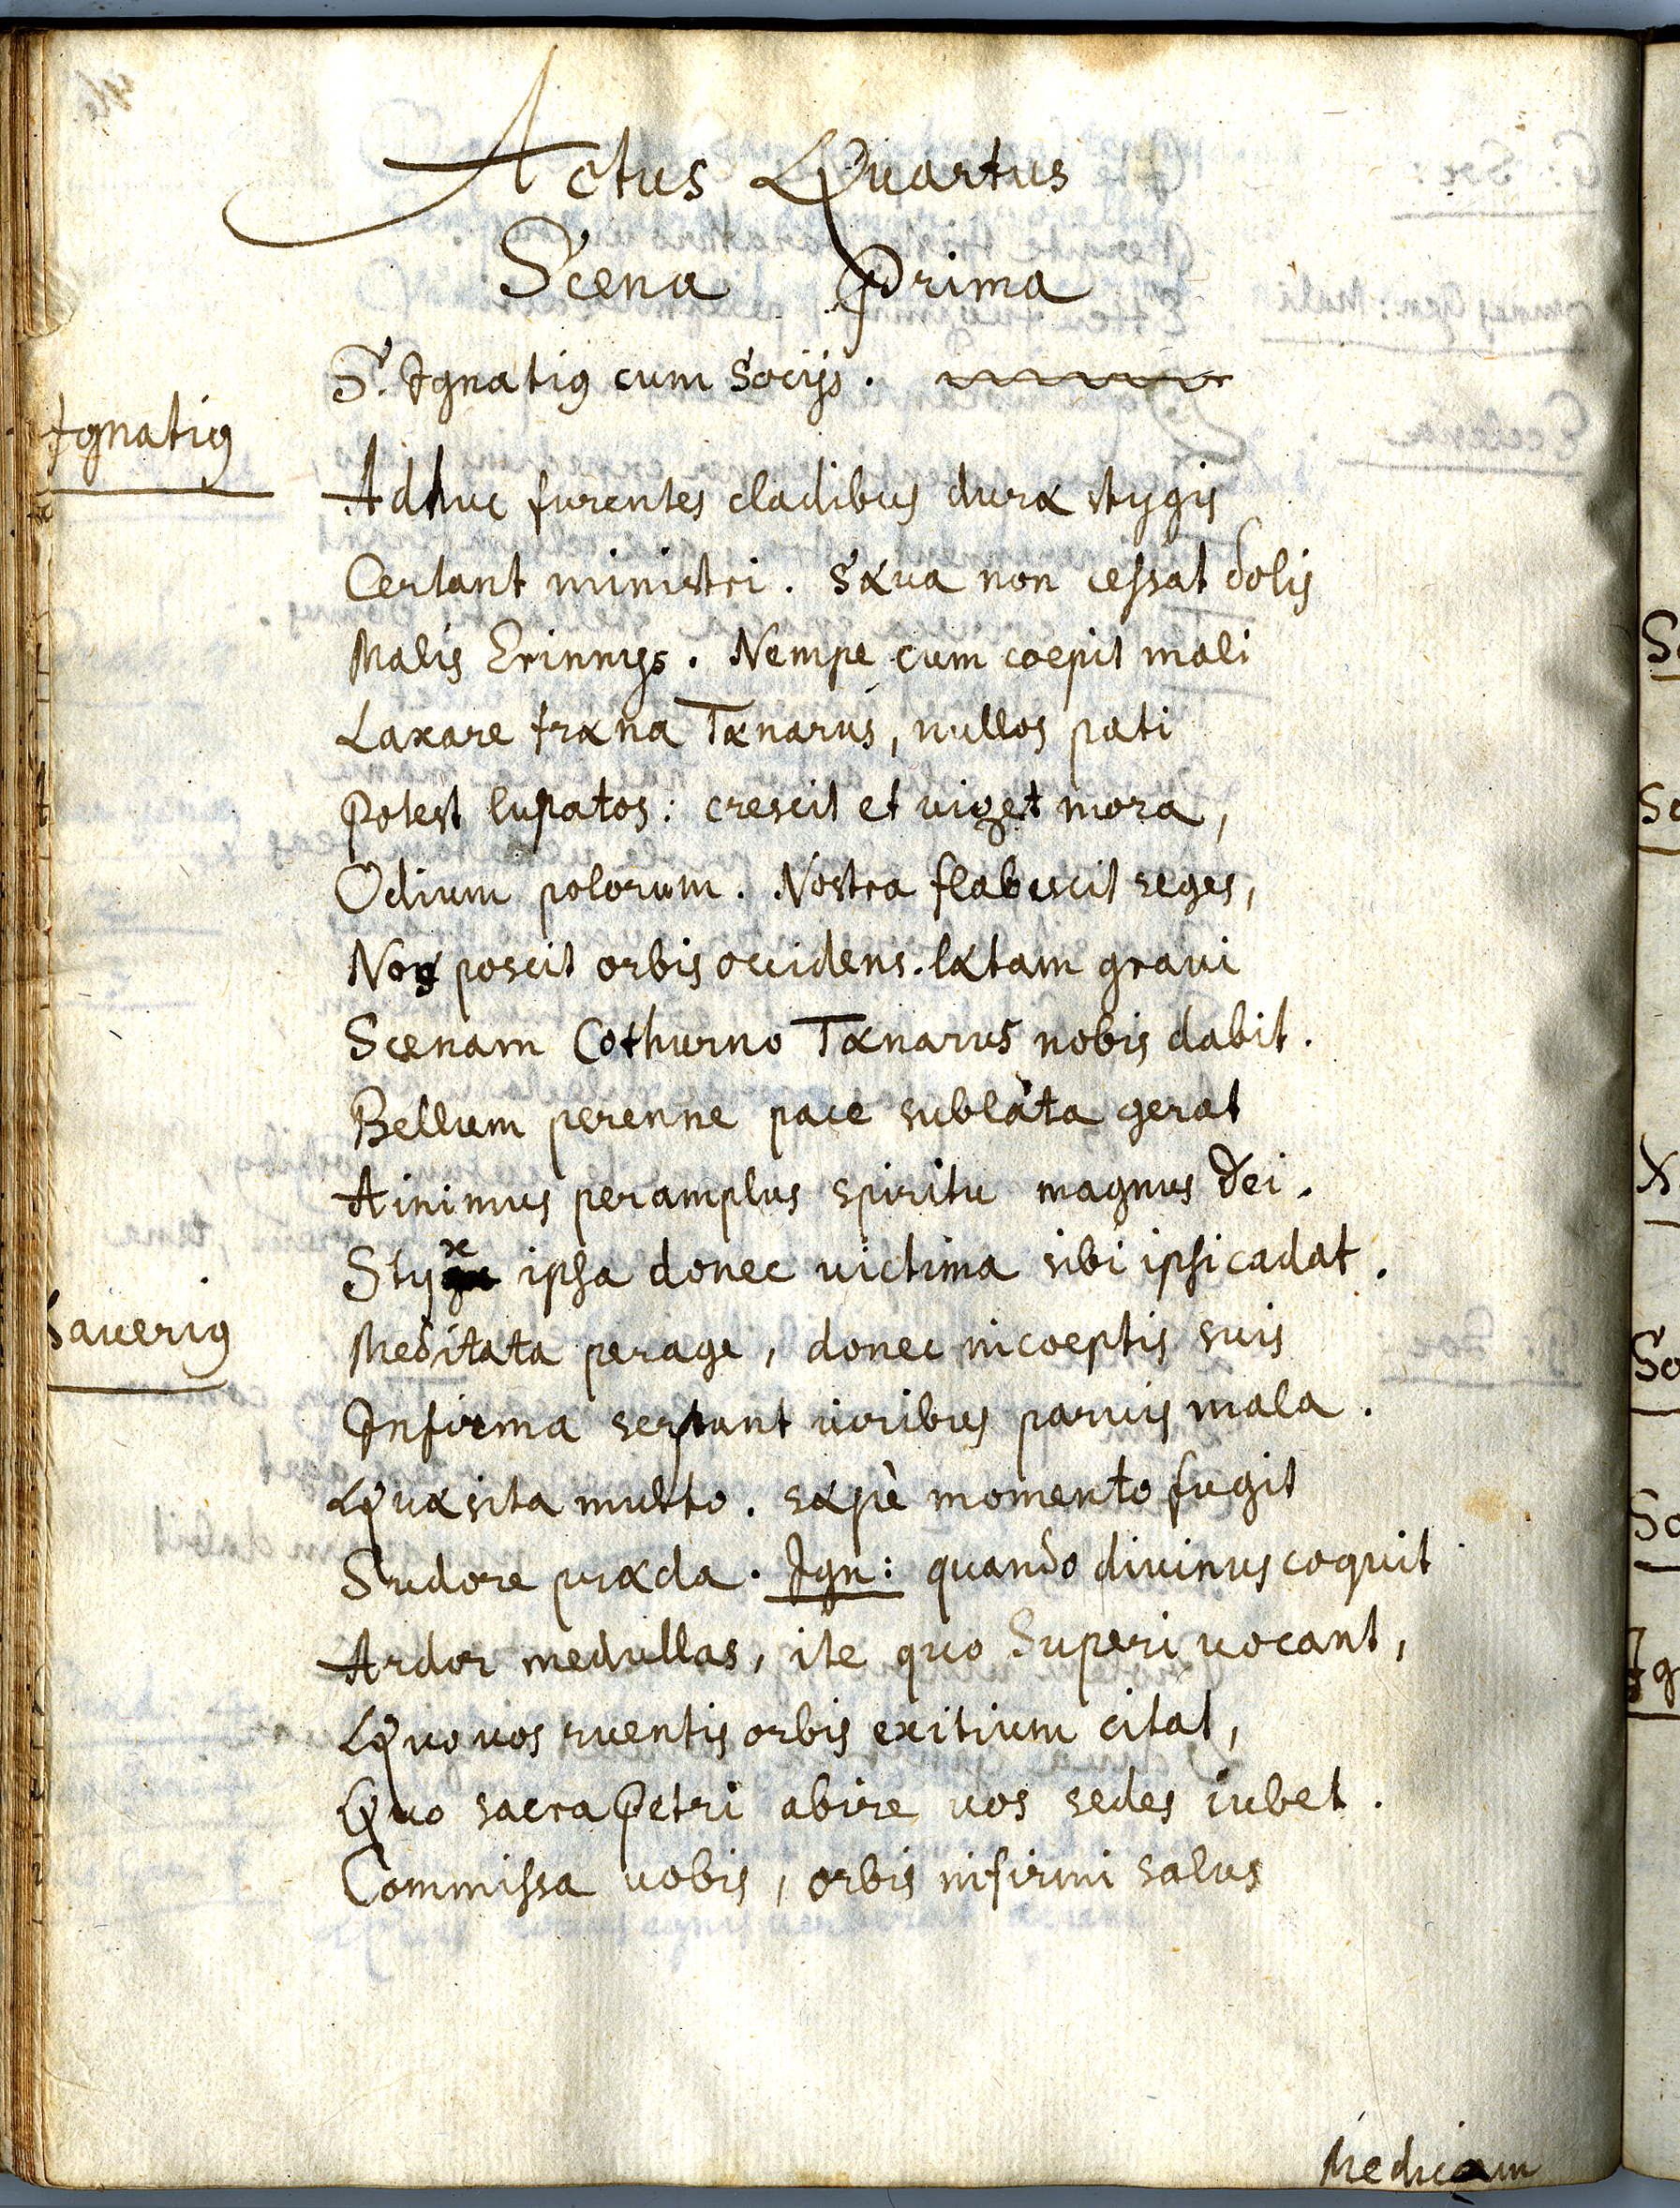 Actus Quartus
Scena Prima
S. Ignatius cum Socijs.
Ignatius
Adhuc furentes cladibus duræ stygis
Certant ministri. Sæua non cessat dolis
Malis Erinnys. Nempe cum coepit mali
Laxare fræna Tænarus, nullos pati
Potest lupatos: crescit et viget mora,
Odium polorum. Nostra flabescit seges,
Nos poscit orbis occidens. lætam graui
Scenam Cothurno Tænarus nobis dabit.
Bellum perenne pace sublàta gerat
Ainimus peramplus spiritu magnus Dei.
Styx ipsa donec victima sibi ipsi cadat.
Xauerius
Meditata perage, donec incoeptis suis
Infirma serpunt viribus paruis mala.
Quæsita multo. sæpè momento fugit
Sudore præda. Ign: quando diuinus coquit
Ardor medullas, ite quo Superi uocant,
Quo uos ruentis orbis exitium citat,
Quo sacra Petri abire uos sedes iubet.
Commissa uobis, orbis infirmi salus
Medicam